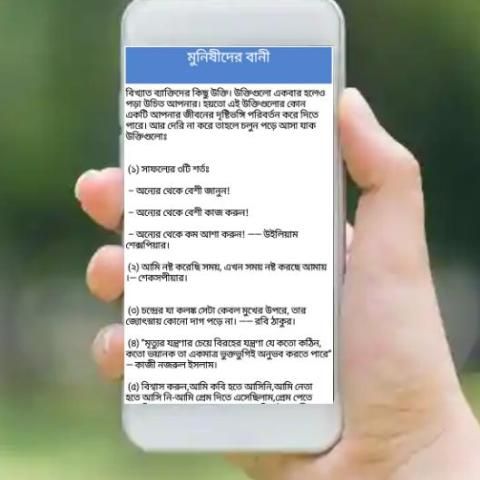 মুনিষীদের বানী
বিখ্যাত ব্যাক্তিদের কিছু উক্তি। উক্তিগুলো একবার হলেও
পড়া উচিত আপনার। হয়তো এই উক্তিগুলোর কোন
একটি আপনার জীবনের দৃষ্টিভঙ্গি পরিবর্তন করে দিতে
পারে। আর দেরি না করে তাহলে চলুন পড়ে আসা যাক
উক্তিগুলোঃ
(১) সাফল্যের ৩টি শর্তঃ
– অন্যের থেকে বেশী জানুন!
– অন্যের থেকে বেশী কাজ করুন!
– অন্যের থেকে কম আশা করুন! —– উইলিয়াম
শেক্সপিয়ার।
(২) আমি নষ্ট করেছি সময়, এখন সময় নষ্ট করছে আমায়
।– শেকসপীয়ার।
(৩) চন্দ্রের যা কলঙ্ক সেটা কেবল মুখের উপরে, তার
জ্যোৎস্নায় কোনো দাগ পড়ে না। —– রবি ঠাকুর।
(৪) "মৃত্যুর যন্ত্রণার চেয়ে বিরহের যন্ত্রণা যে কতো কঠিন,
কতো ভয়ানক তা একমাত্র ভুক্তভুগিই অনুভব করতে পারে"
– কাজী নজরুল ইসলাম।
(৫) বিশ্বাস করুন,আমি কবি হতে আসিনি,আমি নেতা
হতে আসি নি-আমি প্রেম দিতে এসেছিলাম,প্রেম পেতে